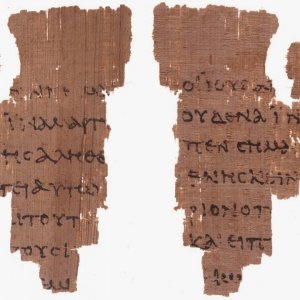 ΙΝΑΜΑΡΤ
ΗϹΑΛΗΘΕ
ΓΕΙΑΥΤΩ
ΙΤΟΥΤ
ΤΟΥϹΙ
ΟΙΙΟΥΔΑΙ
ΟΥΔΕΝΑΙΝ
ΠΕΝϹΗΜΑ
ΘΝΗϹΚΕΙΝ
ΡΙΟΝΟΠ
ΚΑΙΕΙΠ